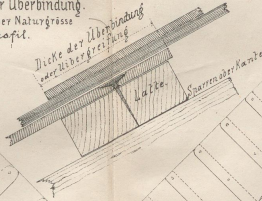 r Überbindung.
er Naturgrösse
rofil.
Dicke der Überbindung
oder Uibergreifung
Latte.
Sparrenober Kante